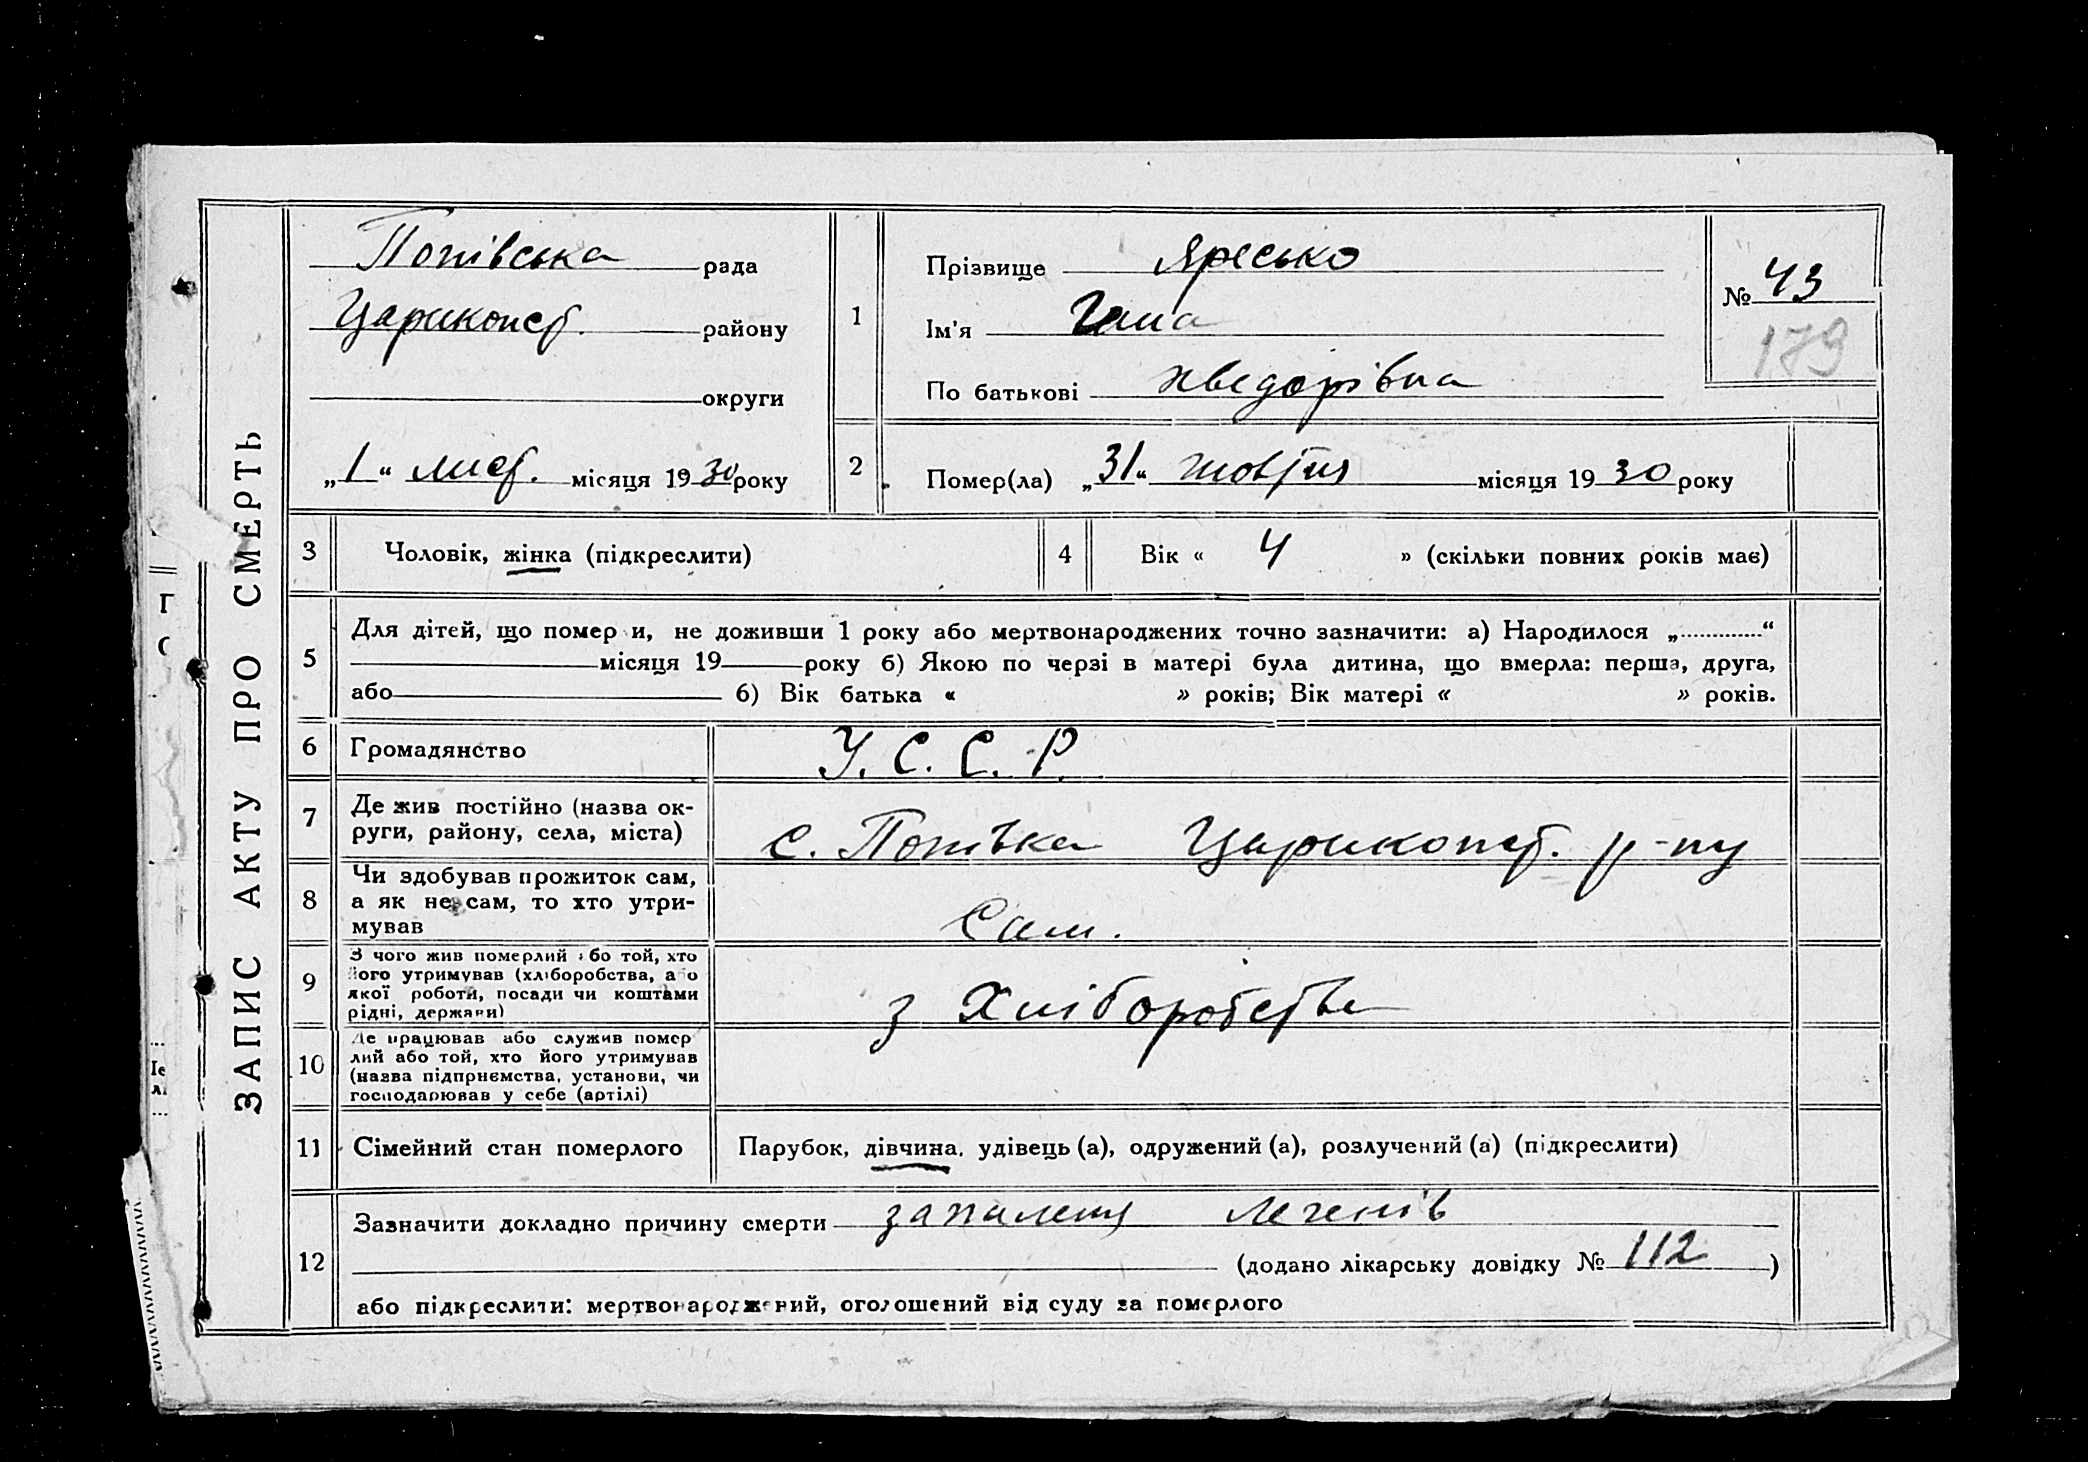 ЗАПИС АКТУ ПРО СМЕРТЬ
Попівська рада
Царикопст. району
округи
„1“ лист. місяця 1930 року
1
Прізвище Яресько
Ім'я Гана
По батькові Хведорівна
№ 43
179
2
Помер(ла) „31“ жовтня місяця 1930 року
3 Чоловік, жінка (підкреслити)
4 Вік « 4 » (скільки повних років має)
5 Для дітей, що помер и, не доживши 1 року або мертвонароджених точно зазначити: а) Народилося „............“
місяця 19 року б) Якою по черзі в матері була дитина, що вмерла: перша, друга,
або 6) Вік батька « » років; Вік матері « » років.
6 Громадянство У. С. С. Р.
7 Де жив постійно (назва ок-
руги, району, села, міста)
с. Попівка Царикопст. р-ну
8 Чи здобував прожиток сам,
а як не сам, то хто утри-
мував
Сам.
9 З чого жив померлий або той, хто
його утримував (хліборобства, або
якої роботи, посади чи коштами
рідні, держави)
з Хліборобства
10 Де працював або служив помер
лий або той, хто його утримував
(назва підприємства, установи, чи
господарював у себе (артілі)
11 Сімейний стан померлого Парубок, дівчина, удівець (а), одружений (а), розлучений (а) (підкреслити)
12 Зазначити докладно причину смерти запаленя легенів
(додано лікарську довідку № 112 )
або підкреслити: мертвонароджений, оголошений від суду за померлого